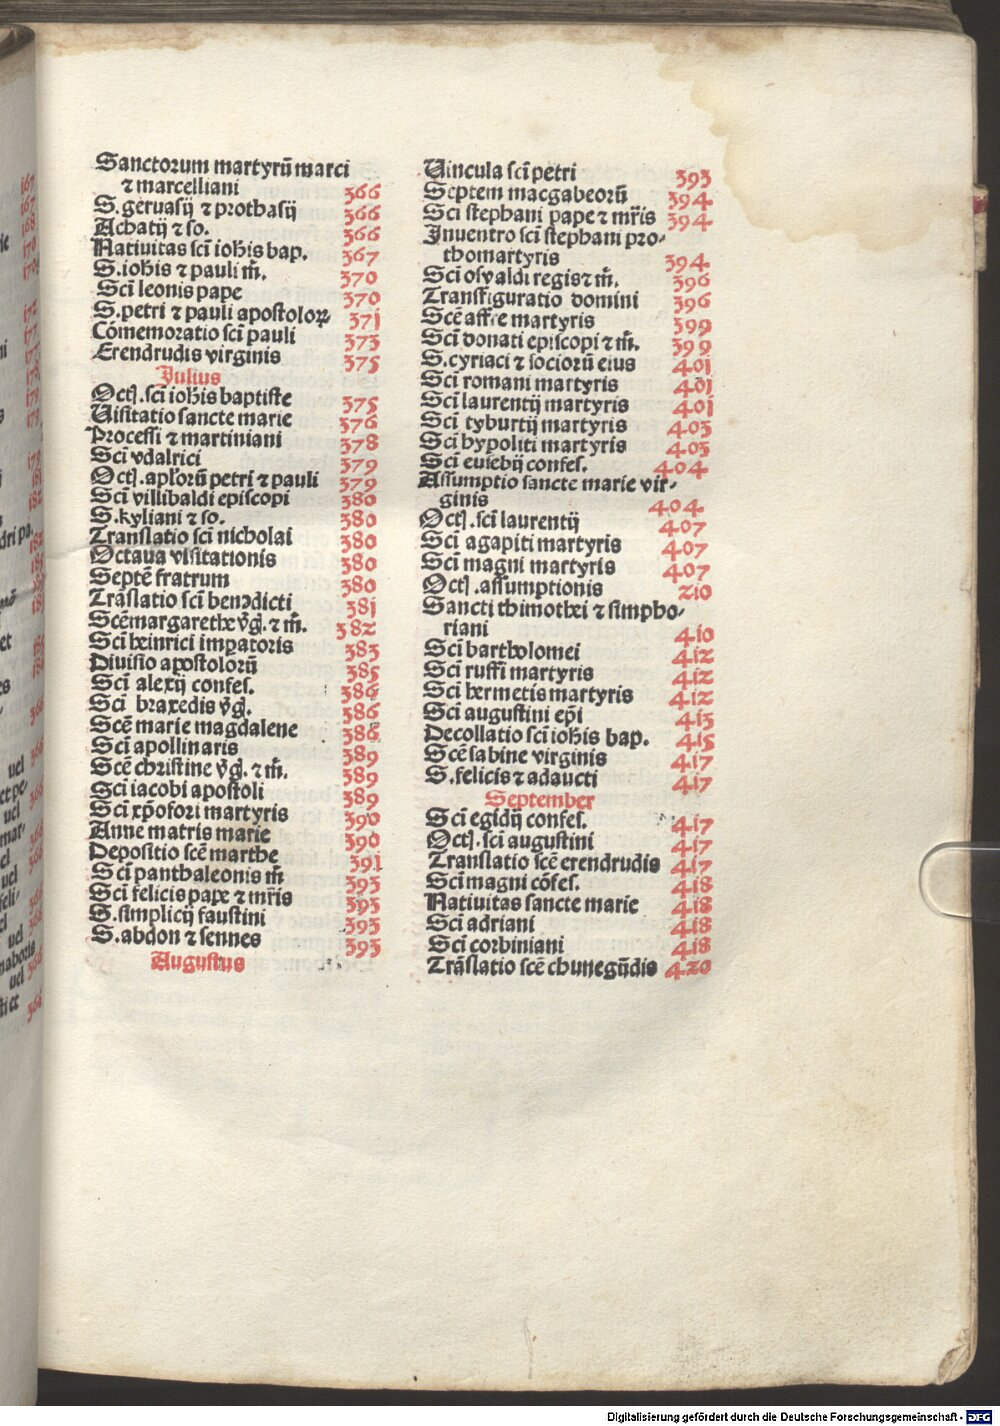 Sanctorum martyrū marci
⁊ marcelliani 366
S. geruasij ⁊ prothasij 366
Achatij ⁊ so. 366
Natiuitas scī ioh̄is bap. 367
S. ioh̄is ⁊ pauli m̄. 370
Scī leonis pape 370
S. petri ⁊ pauli apostoloꝝ 371
Cōmemoratio scī pauli 373
Erendrudis virginis 375
Julius
Octꝭ. scī ioh̄is baptiste 375
Uisitatio sancte marie 376
Processi ⁊ martiniani 378
Scī vdalrici 379
Octꝭ. aplōrū petri ⁊ pauli 379
Scī villibaldi episcopi 380
S. kyliani ⁊ so. 380
Translatio scī nicholai 380
Octaua visitationis 380
Septē fratrum 380
Trāslatio scī benedicti 381
Scē margarethe v̄g. ⁊ m̄. 382
Scī heinrici imꝑatoris 383
Diuisio apostolorū 385
Scī alexij confes. 386
Scī braxedis v̄g. 386
Scē marie magdalene 386
Scī apollinaris 389
Scē christine v̄g. ⁊ m̄. 389
Sci iacobi apostoli 389
Scī xp̄ofori martyris 390
Anne matris marie 390
Depositio scē marthe 391
Scī panthaleonis m̄ 393
Scī felicis pape ⁊ mr̄is 393
S. simplicij faustini 393
S. abdon ⁊ sennes 393
Augustus
Uincula scī petri 393
Septem macgabeorū 394
Scī stephani pape ⁊ mr̄is 394
Inuentro scī stephani pro-
thomartyris 394
Scī osvaldi regis ⁊ m̄. 396
Transfiguratio domini 396
Scē affre martyris 399
Scī donati episcopi ⁊ m̄. 399
S. cyriaci ⁊ sociorū eius 401
Scī romani martyris 401
Scī laurentij martyris 401
Scī tyburtij martyris 403
Scī hypoliti martyris 403
Scī eusebij confes. 404
Assumptio sancte marie vir-
ginis 404
Octꝭ. scī laurentij 407
Scī agapiti martyris 407
Scī magni martyris 407
Octꝭ. assumptionis 210
Sancti thimothei ⁊ simpho-
riani 410
Scī bartholomei 412
Scī ruffi martyris 412
Scī hermetis martyris 412
Scī augustini ep̄i 413
Decollatio scī ioh̄is bap. 415
Scē sabine virginis 417
S. felicis ⁊ adaucti 417
September
Scī egidij confes. 417
Octꝭ. scī augustini 417
Translatio scē erendrudis 417
Scī magni cōfes. 418
Natiuitas sancte marie 418
Scī adriani 418
Scī corbiniani 418
Trāslatio scē chunegūdis 420
Digitalisierung gefördert durch die Deutsche Forschungsgemeinschaft - DFG